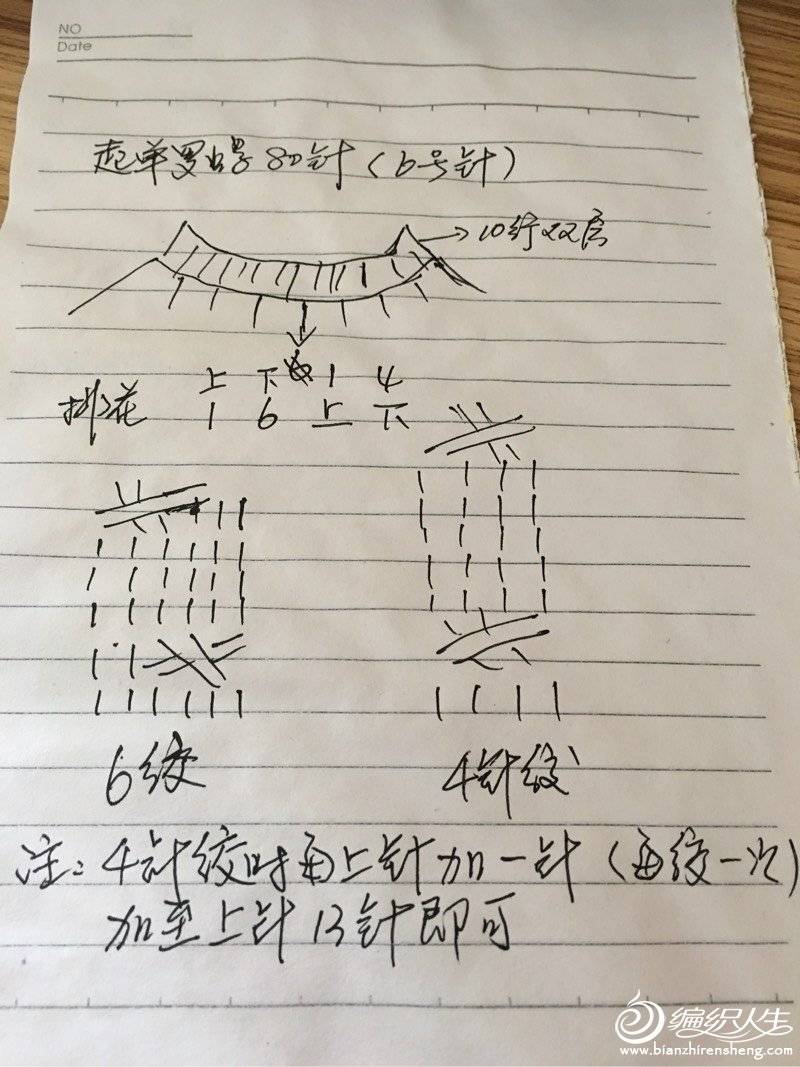 NO
Date
起单罗纹 80针（6号针）
10行双层
上 下 1 4
排花 1 6 上 下
6绞
4针绞
注：4针绞时每上针加一针（每绞一次）
加至上针13针即可
编织人生
www.bianzhirensheng.com